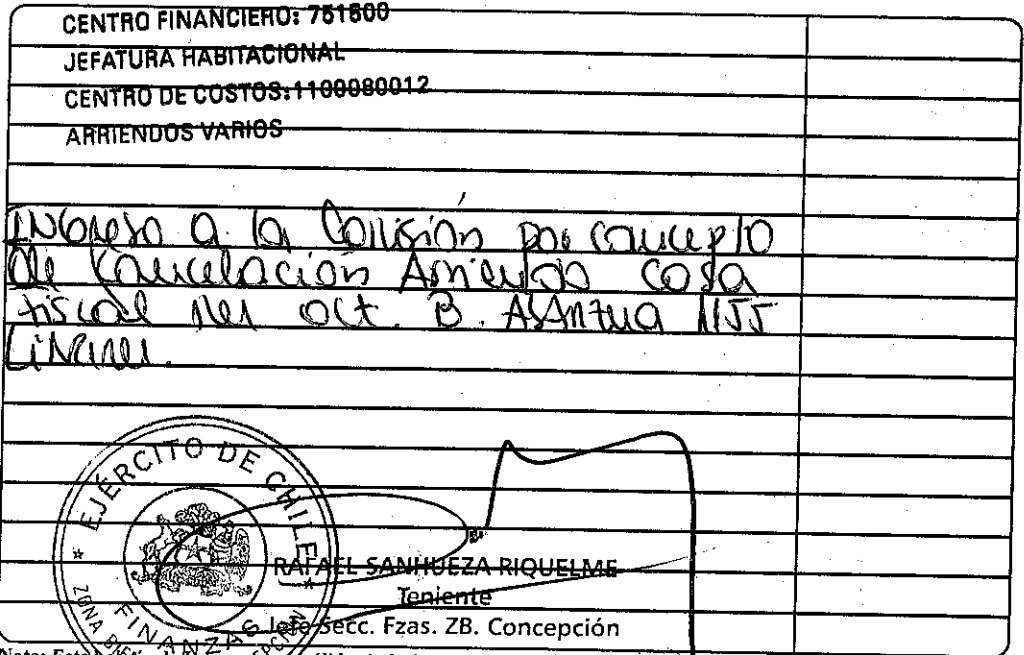 CENTRO FINANCIERO: 751500
JEFATURA HABITACIONAL
CENTRO DE COSTOS:1100080012
ARRIENDOS VARIOS
Ingreso a la Comisión por concepto
de Cancelación Arriendo Casa
fiscal mes oct. B. Asantua
Linares.
EJÉRCITO DE CHILE
FINANZAS
RAFAEL SANHUEZA RIQUELME
Teniente
Jefe Secc. Fzas. ZB. Concepción